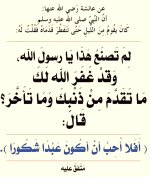 عن عائشة رضي الله عنها:
أنَّ النَّبِيَّ صلى الله عليه وسلم
كَانَ يَقُومُ مِنَ اللَّيْلِ حَتَّى تَتَفَطَّرَ قَدَمَاهُ فَقُلْتُ لَهُ:
لِمَ تَصْنَعُ هَذَا يَا رسولَ اللَّهِ،
وَقَدْ غَفَرَ اللَّهُ لَكَ
مَا تَقَدَّمَ مِنْ ذَنْبِكَ وَمَا تَأَخَّرَ؟
قَالَ:
( أَفَلَا أُحِبُّ أَنْ أَكُونَ عَبْدًا شَكُورًا ).
متفق عليه